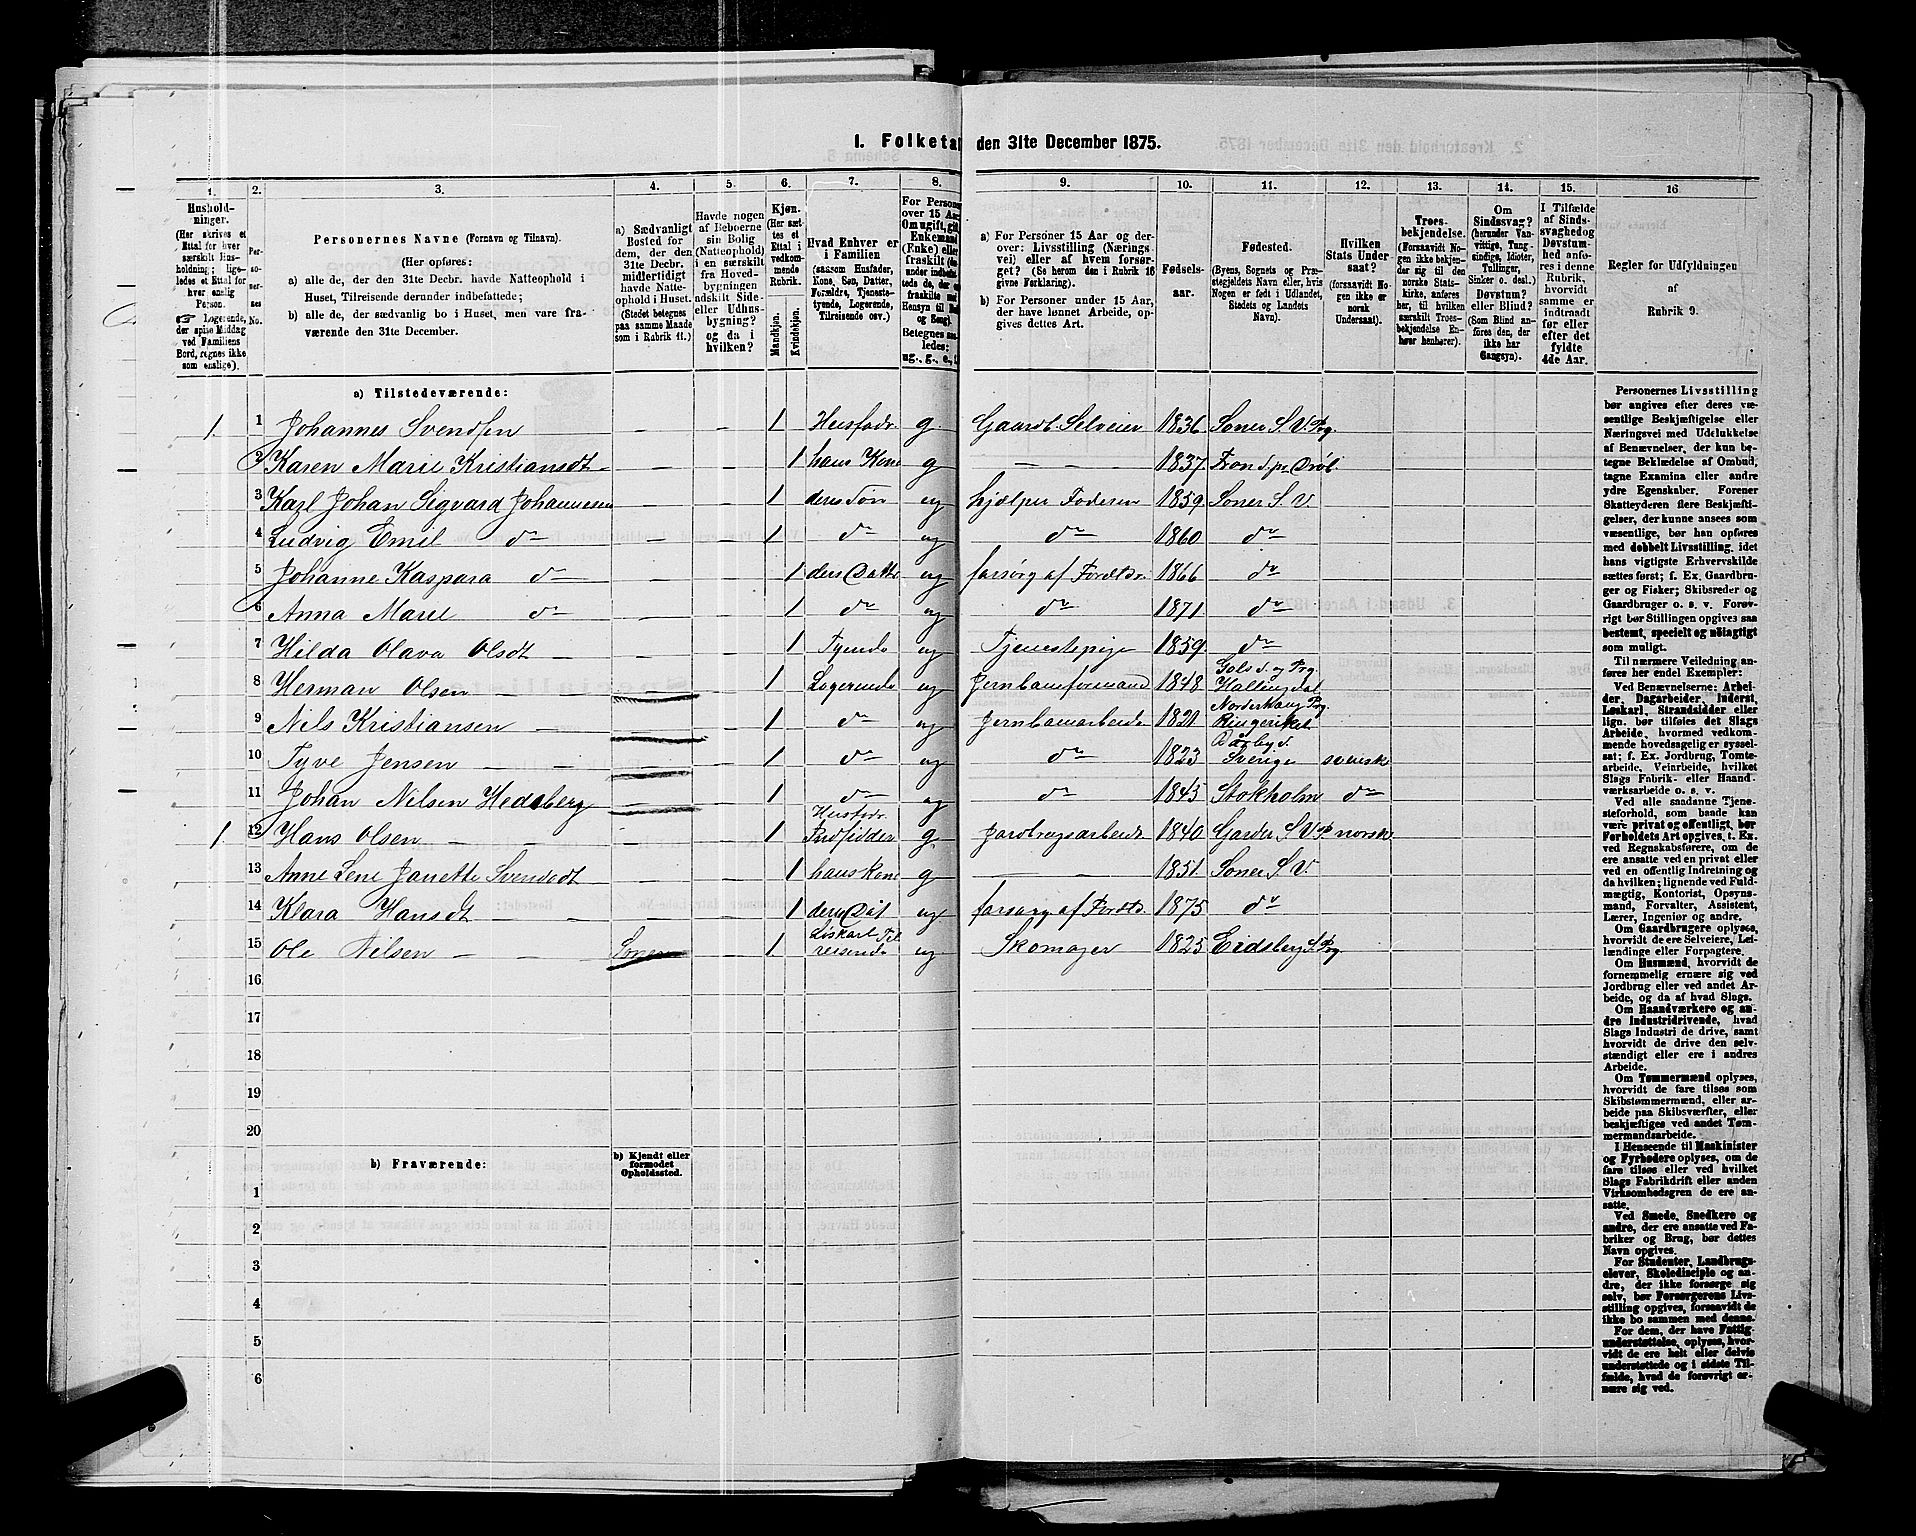 I. Folketal den 31te December 1875.
1. 2. 3. 4. 5. 6. 7. 8. 9. 10. 11. 12. 13. 14. 15. 16
Husholdninger.
(Her skrives et
Ettal for hver
særskilt Husholdning; ligeledes et Ettal for
hver enslig
Person.
☞ Logerende,
der spise Middag
ved Familiens
Bord, regnes ikke
som enslige).
Personernes No.
Personernes Navne (Fornavn og Tilnavn).
(Her opføres:
a) alle de, der den 31te Decbr. havde Natteophold i
Huset, Tilreisende derunder indbefattede;
b) alle de, der sædvanlig bo i Huset, men vare fraværende den 31te December.
a) Sædvanligt
Bosted for
dem, der den
31te Decbr.
midlertidigt
havde Natteophold i Huset.
(Stedet betegnes
paa samme Maade
som i Rubrik 11.)
Havde nogen
af Beboerne
sin Bolig
(Natteophold)
i en særskilt
fra Hovedbygningen
adskilt Side-
eller Udhusbygning?
og da i
hvilken?
Kjøn.
(Her sættes et
Ettal i
vedkommende
Rubrik.
Mandkjøn.
Kvindekjøn.
Hvad Enhver er
i Familien
(saasom Husfader,
Kone, Søn, Datter,
Forældre, Tjenestetyende, Logerende,
Tilreisende osv.)
For Personer
over 15 Aar
Om ugift, gift,
Enkemand
(Enke) eller
fraskilt
Betegnes saaledes:
ug., g., e.,
a) For Personer 15 Aar og derover: Livsstilling (Næringsvei) eller af hvem forsørget? (Se herom den i Rubrik 16
givne Forklaring).
b) For Personer under 15 Aar,
der have lønnet Arbeide, opgives dettes Art.
Fødselsaar.
Fødested.
(Byens, Sognets og Præstegjeldets Navn eller, hvis
Nogen er født i Udlandet,
Stedets og Landets
Navn).
Hvilken
Stats Undersaat?
(forsaavidt Nogen ikke er
norsk
Undersaat).
Troesbekjendelse.
(Forsaavidt Nogen ikke bekjender sig til den
norske Statskirke, anføres
her, til hvilken
særskilt Troesbekjendelse Enhver henhører).
Om
Sindssvag?
(herunder Vanvittige, Tungsindige, Idioter,
Tullinger,
Sinker o. desl.)
Døvstum?
eller Blind?
(Som Blind anføres den, der
ikke har
Gangsyn).
I Tilfælde
af Sindssvaghed og
Døvstumhed anføres i denne
Rubrik,
hvorvidt
samme er
indtraadt
før eller
efter det
fyldte
4de Aar.
Regler for Udfyldningen
af
Rubrik 9.
a) Tilstedeværende:
1. 1 Johannes Svendsen — — 1 Husfadr. g. Gaardb. Selveier 1836. Soner S. V. Prg.
2 Karen Marie Kristiansdt — — 1 hans Kone g — — 1837. Drøb.
3 Karl Johan Sigvard Johannesen — 1 deres Søn ug hjælper Faderen 1859. Soner S. V.
4 Ludvig Emil do — — 1 do ug do 1860 do
5 Johanne Kaspara do — — 1 ders Datte ug forsørg af Foreldr. 1866 do
6 Anna Marie do — — 1 do ug do 1871. do
7 Hilda Olava Olsdt — — 1 Tyende ug Tjenestepige 1859. do
8 Herman Olsen — — 1 Logerende ug Jernbaneformand 1848 Gols S. og Prg. Hallingdal
9 Nils Kristiansen — — 1 do ug Jernbanearbeide 1821 Norderhoug Prg. Ringeriket
10 Tyve Jensen — — 1 do ug do 1823 Sverige svensk
11 Johan Nilsen Hedsberg — — 1 do ug do 1845 Stokholm do
1. 12 Hans Olsen — — 1 Husfadr. g. Jordbrugsarbeide 1840 Garder S. V. P. norsk
13 Anne Lene Janette Svendsdt — — 1 hans Kone g — 1851. Soner S. V.
14 Klara Hansdt — — 1 ders Dat ug forsørg af Foreldr. 1875 do
15 Ole Nilsen — — Soner — 1 Løskarl Tilreisende ug Skomager 1825 Eidsberg S. Prg
16
17
18
19
20
b) Fraværende:
b) Kjendt eller
formodet
Opholdssted.
1
2
3
4
5
6
Personernes Livsstilling
bør angives efter deres væsentlige Beskjæftigelse eller
Næringsvei med Udelukkelse
af Benævnelser, der kun betegne Beklædelse af Ombud,
tagne Examina eller andre
ydre Egenskaber. Forener
Skatteyderen flere Beskjæftigelser, der kunne ansees som
væsentlige, bør han opføres
med dobbelt Livsstilling, idet
hans vigtigste Erhvervskilde
sættes først; f. Ex. Gaardbruger og Fisker; Skibsreder og
Gaardbruger o. s. v. Forøvrigt bør Stillingen opgives saa
bestemt, specielt og nøiagtigt
som muligt.
Til nærmere Veiledning anføres her endel Exempler:
Ved Benævnelserne: Arbeider, Dagarbeider, Inderst,
Løskarl, Strandsidder eller
lign. bør tilføies det Slags
Arbeide, hvormed vedkommende hovedsagelig er sysselsat; f. Ex. Jordbrug, Tomtearbeide, Veiarbeide, hvilket
Slags Fabrik- eller Haandværksarbeide o. s. v.
Ved alle saadanne Tjenesteforhold, som baade kan
være privat og offentligt, bør
Forholdets Art opgives, t. Ex.
ved Regnskabsførere, om de
ere ansatte ved en privat eller
ved en offentlig Indretning og
da hvilken; lignende ved Fuldmægtig, Kontorist, Opsynsmand, Forvalter, Assistent,
Lærer, Ingeniør og andre.
Om Gaardbrugere oplyses,
hvorvidt de ere Selveiere, Leilændinge eller Forpagtere.
Om Husmænd, hvorvidt de
fornemmelig ernære sig ved
Jordbrug eller ved andet Arbeide, og da af hvad Slags.
Om Haandværkere og andre Industridrivende, hvad
Slags Industri de drive, samt
hvorvidt de drive den selvstændigt eller ere i andres
Arbeide.
Om Tømmermænd oplyses,
hvorvidt de fare tilsøs som
Skibstømmermænd, eller arbeide paa Skibsværfter, eller
beskjæftiges ved andet Tømmermandsarbeide.
I Henseende til Maskinister
og Fyrbødere oplyses, om de
fare tilsøs eller ved hvilket
Slags Fabrikdrift eller anden
Virksomhedsgren de ere ansatte.
Ved Smede, Snedkere og
andre, der ere ansatte ved Fabriker og Brug, bør dettes
Navn opgives.
For Studenter, Landbrugselever, Skoledisciple og andre, der ikke forsørge sig
selv, bør Forsørgerens Livsstilling opgives, forsaavidt de
ikke bo sammen med denne.
For dem, der have Fattigunderstøttelse, oplyses, hvorvidt de ere helt eller delvis
understøttede og i sidste Tilfælde, hvad de forøvrigt ernære sig ved.